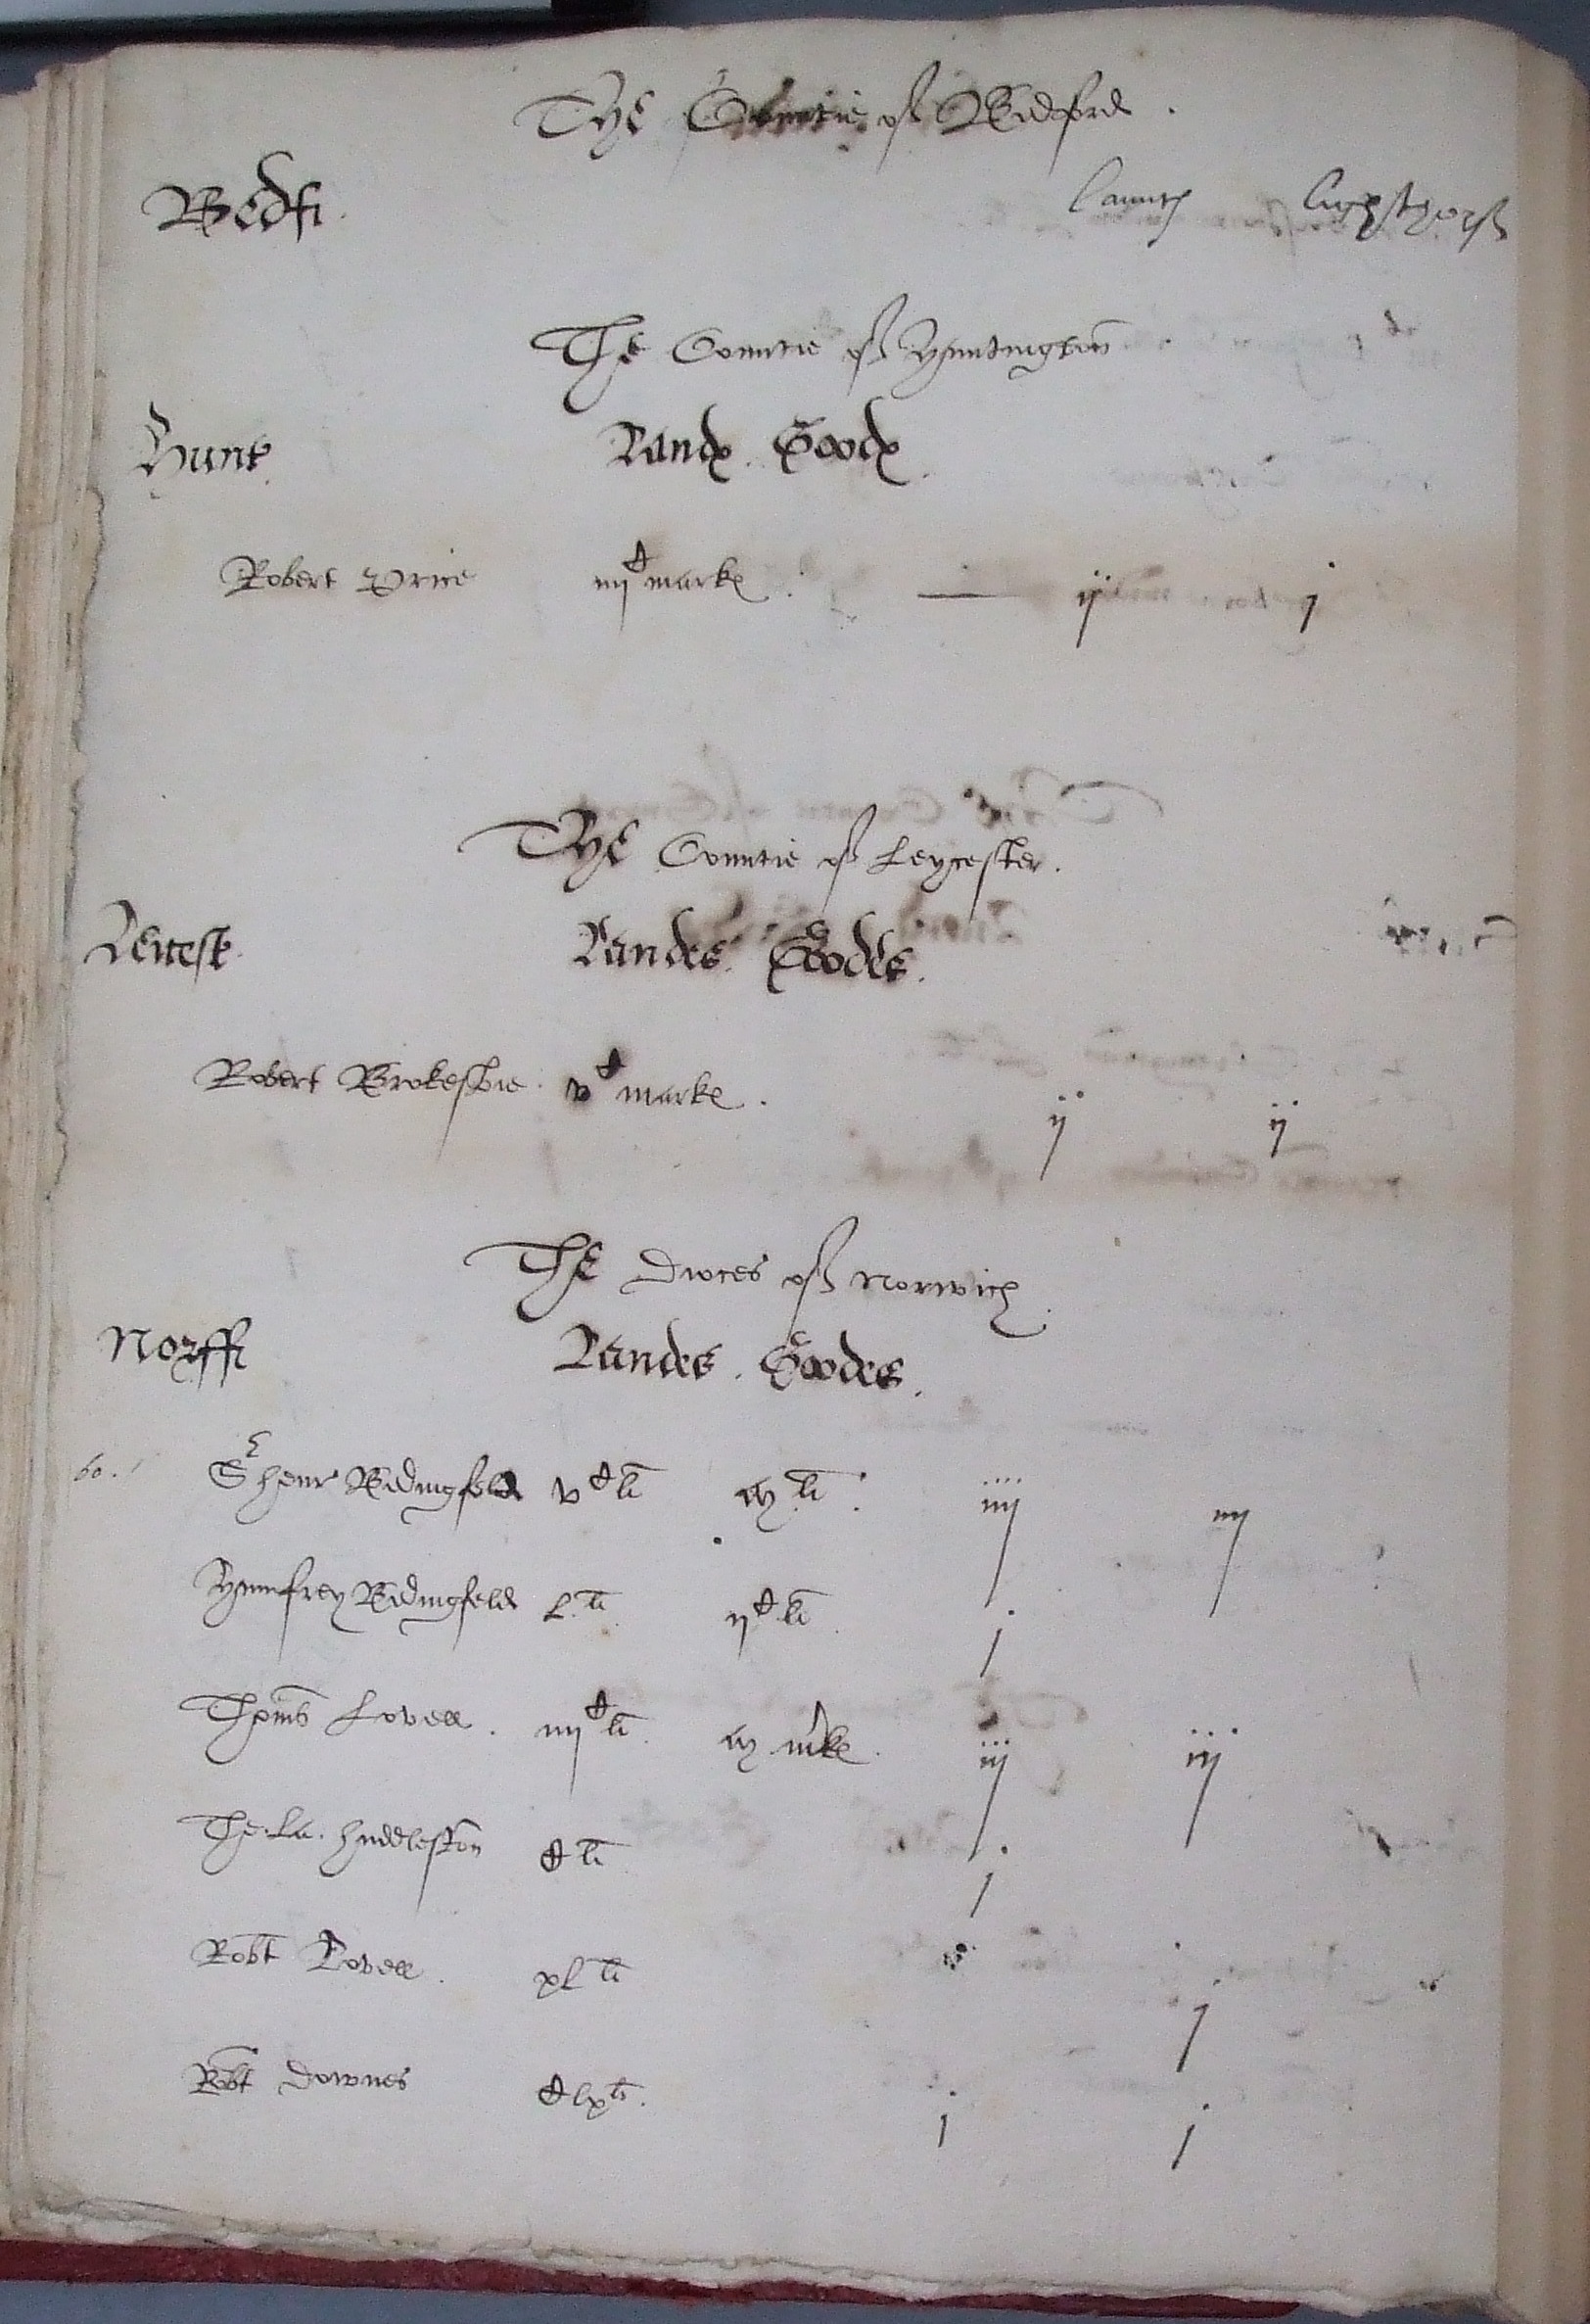 The Countie of Bedford.
Bedf.
Launc lighthors
The Countie of Huntington
Hunt.
Landes. Goodes.
Robert Price iiij C marke. ij j
The Countie of Leycester.
Leicest.
Landes. Goodes.
Robert Brokesbie v C marke. ij ij
The Dioces of Norwich.
Norff
Landes. Goodes.
60. Sr Henr Bedingfeld v C li M li. iiij iiij
Humfrey Bedingfeld L li ij C li. j
Thoms Lovell. iiij C li. M mrke. iij iij
The La. Huddleston C li j
Robt Lovell. xl li j
Robt Downes C lx li. j j